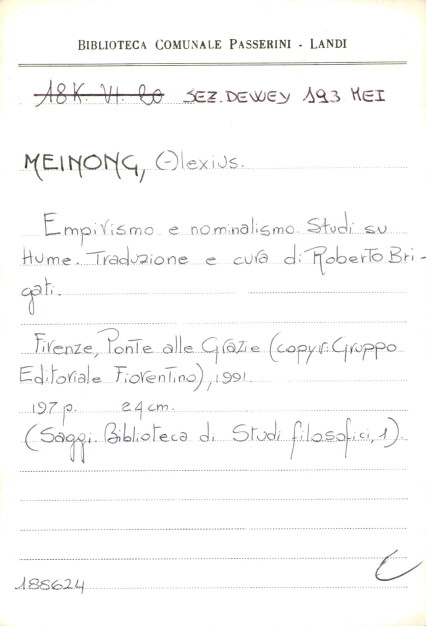 BIBLIOTECA COMUNALE PASSERINI - LANDI
18K. VI. 20 SEZ. DEWEY 193 MEI
MEINONG, Alexius.
Empirismo e nominalismo. Studi su
Hume. Traduzione e cura di Roberto Bri-
gati.
Firenze, Ponte alle Grazie (copyr. Gruppo
Editoriale Fiorentino), 1991.
197 p. 24 cm.
(Saggi. Biblioteca di Studi filosofici, 1).
188624